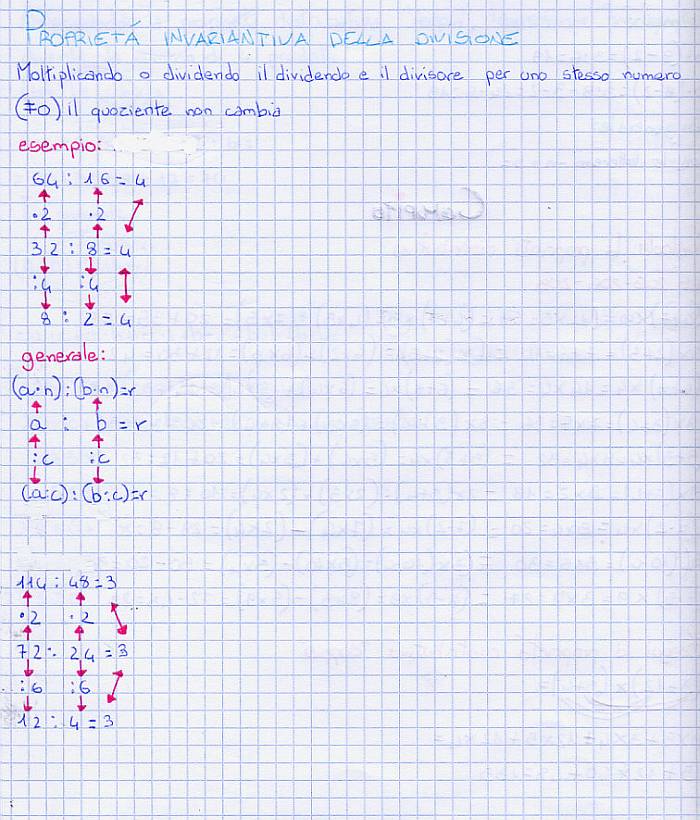 PROPRIETÁ INVARIANTIVA DELLA DIVISIONE
Moltiplicando o dividendo il dividendo e il divisore per uno stesso numero
(≠0) il quoziente non cambia
esempio:
64 : 16 = 4
·2 ·2
32 : 8 = 4
:4 :4
8 : 2 = 4
generale:
(a·n):(b·n)=r
a : b = r
:c :c
(a:c):(b:c)=r
114 : 48 = 3
·2 ·2
72 : 24 = 3
:6 :6
12 : 4 = 3